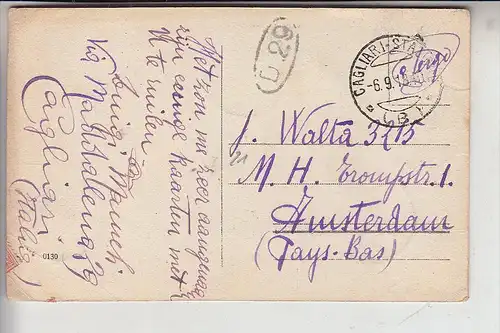 Het zou me zeer aangenaam
zijn eenige kaarten met
U te ruilen
Luigi
Via Maddalena 89
Cagliari
(Italia)
0130
D.29
CAGLIARI-STAZ
-6.9.1
J. Walta 3215
M. H. Trompstr. 1.
Amsterdam
(Pays-Bas)